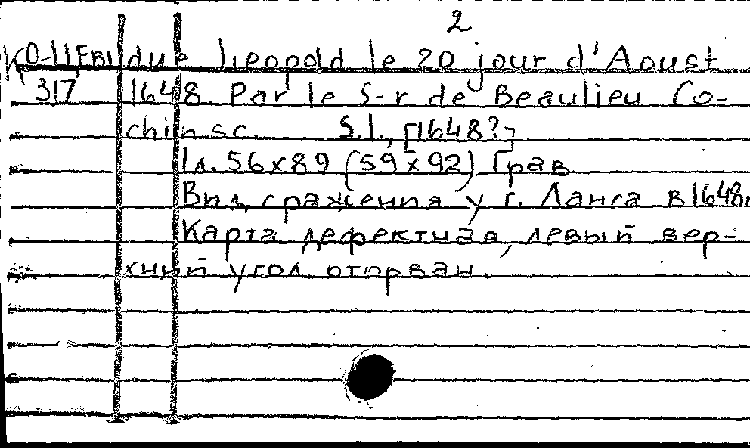 2
due Leopold le 20 jour d'Aoust
317 1648 Par le S-r de Beaulieu Co-
chin sc. S.l., [1648?]
1л. 56x89 (59x92) Грав
Вид сражения у г. Ланса в 1648г
Карта дефектная, левый вер-
хний угол оторван.